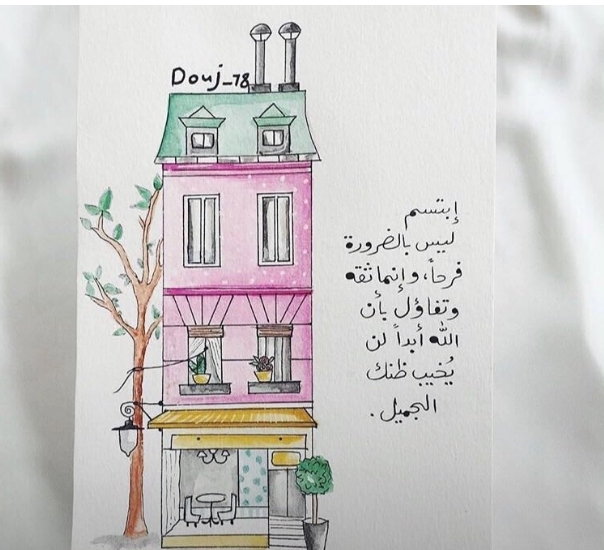 Douj_78
إبتسم
ليس بالضرورة
فرحاً، وإنما ثقه
وتفاؤل بأن
الله أبداً لن
يُخيب ظنك
الجميل.